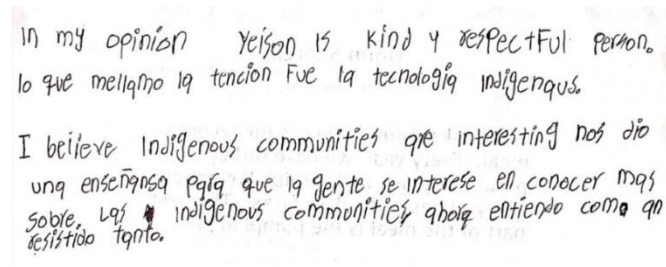 In my opinion Yeison is kind y respectful person.
lo que mellamo la tencion fue la tecnologia indigenaus.
I believe Indigenous communities are interesting nos dio
una enseñansa para que la gente se interese en conocer mas
sobre. Las indigenous communities ahora entiendo como an
resistido tanto.